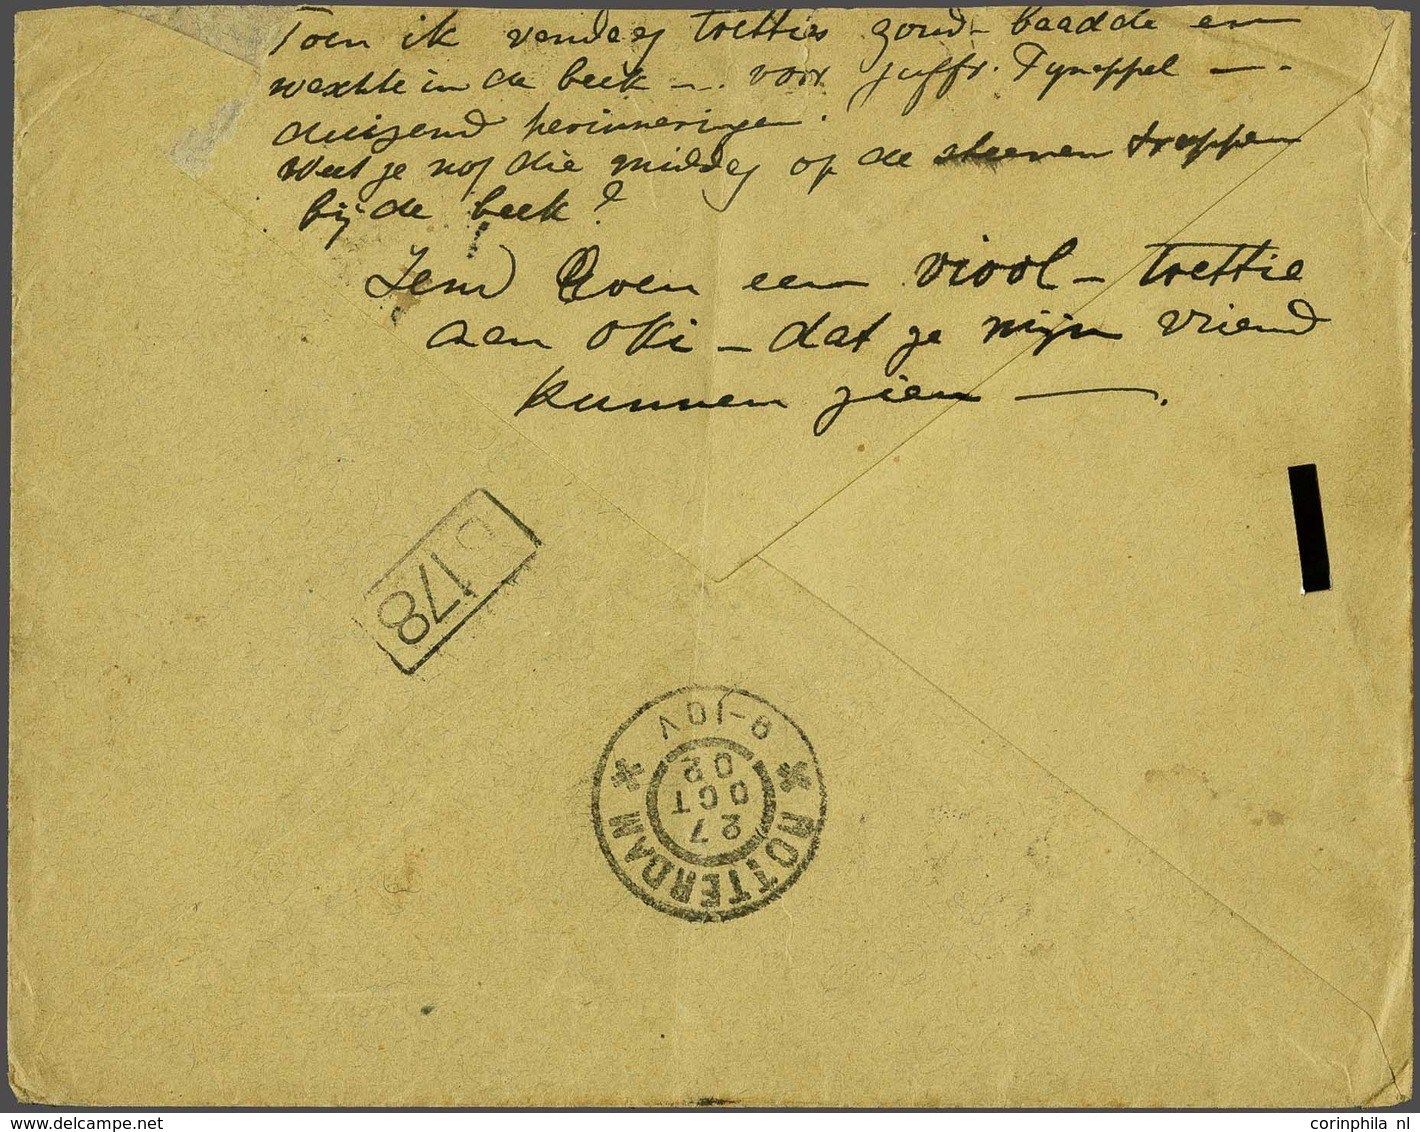 Toen ik vandeeg trettie goud - baadde en
in de beek - .. voor juffr. Pynappel - .
duizend herinneringen.
Weet je nog die middag op de steenen trappen
bij de beek?
Zend even een viool - trettie
aan Oki - dat ze mijn vriend
kunnen zien - .
178
ROTTERDAM
8-10V
27
OCT
02
corinphila nl